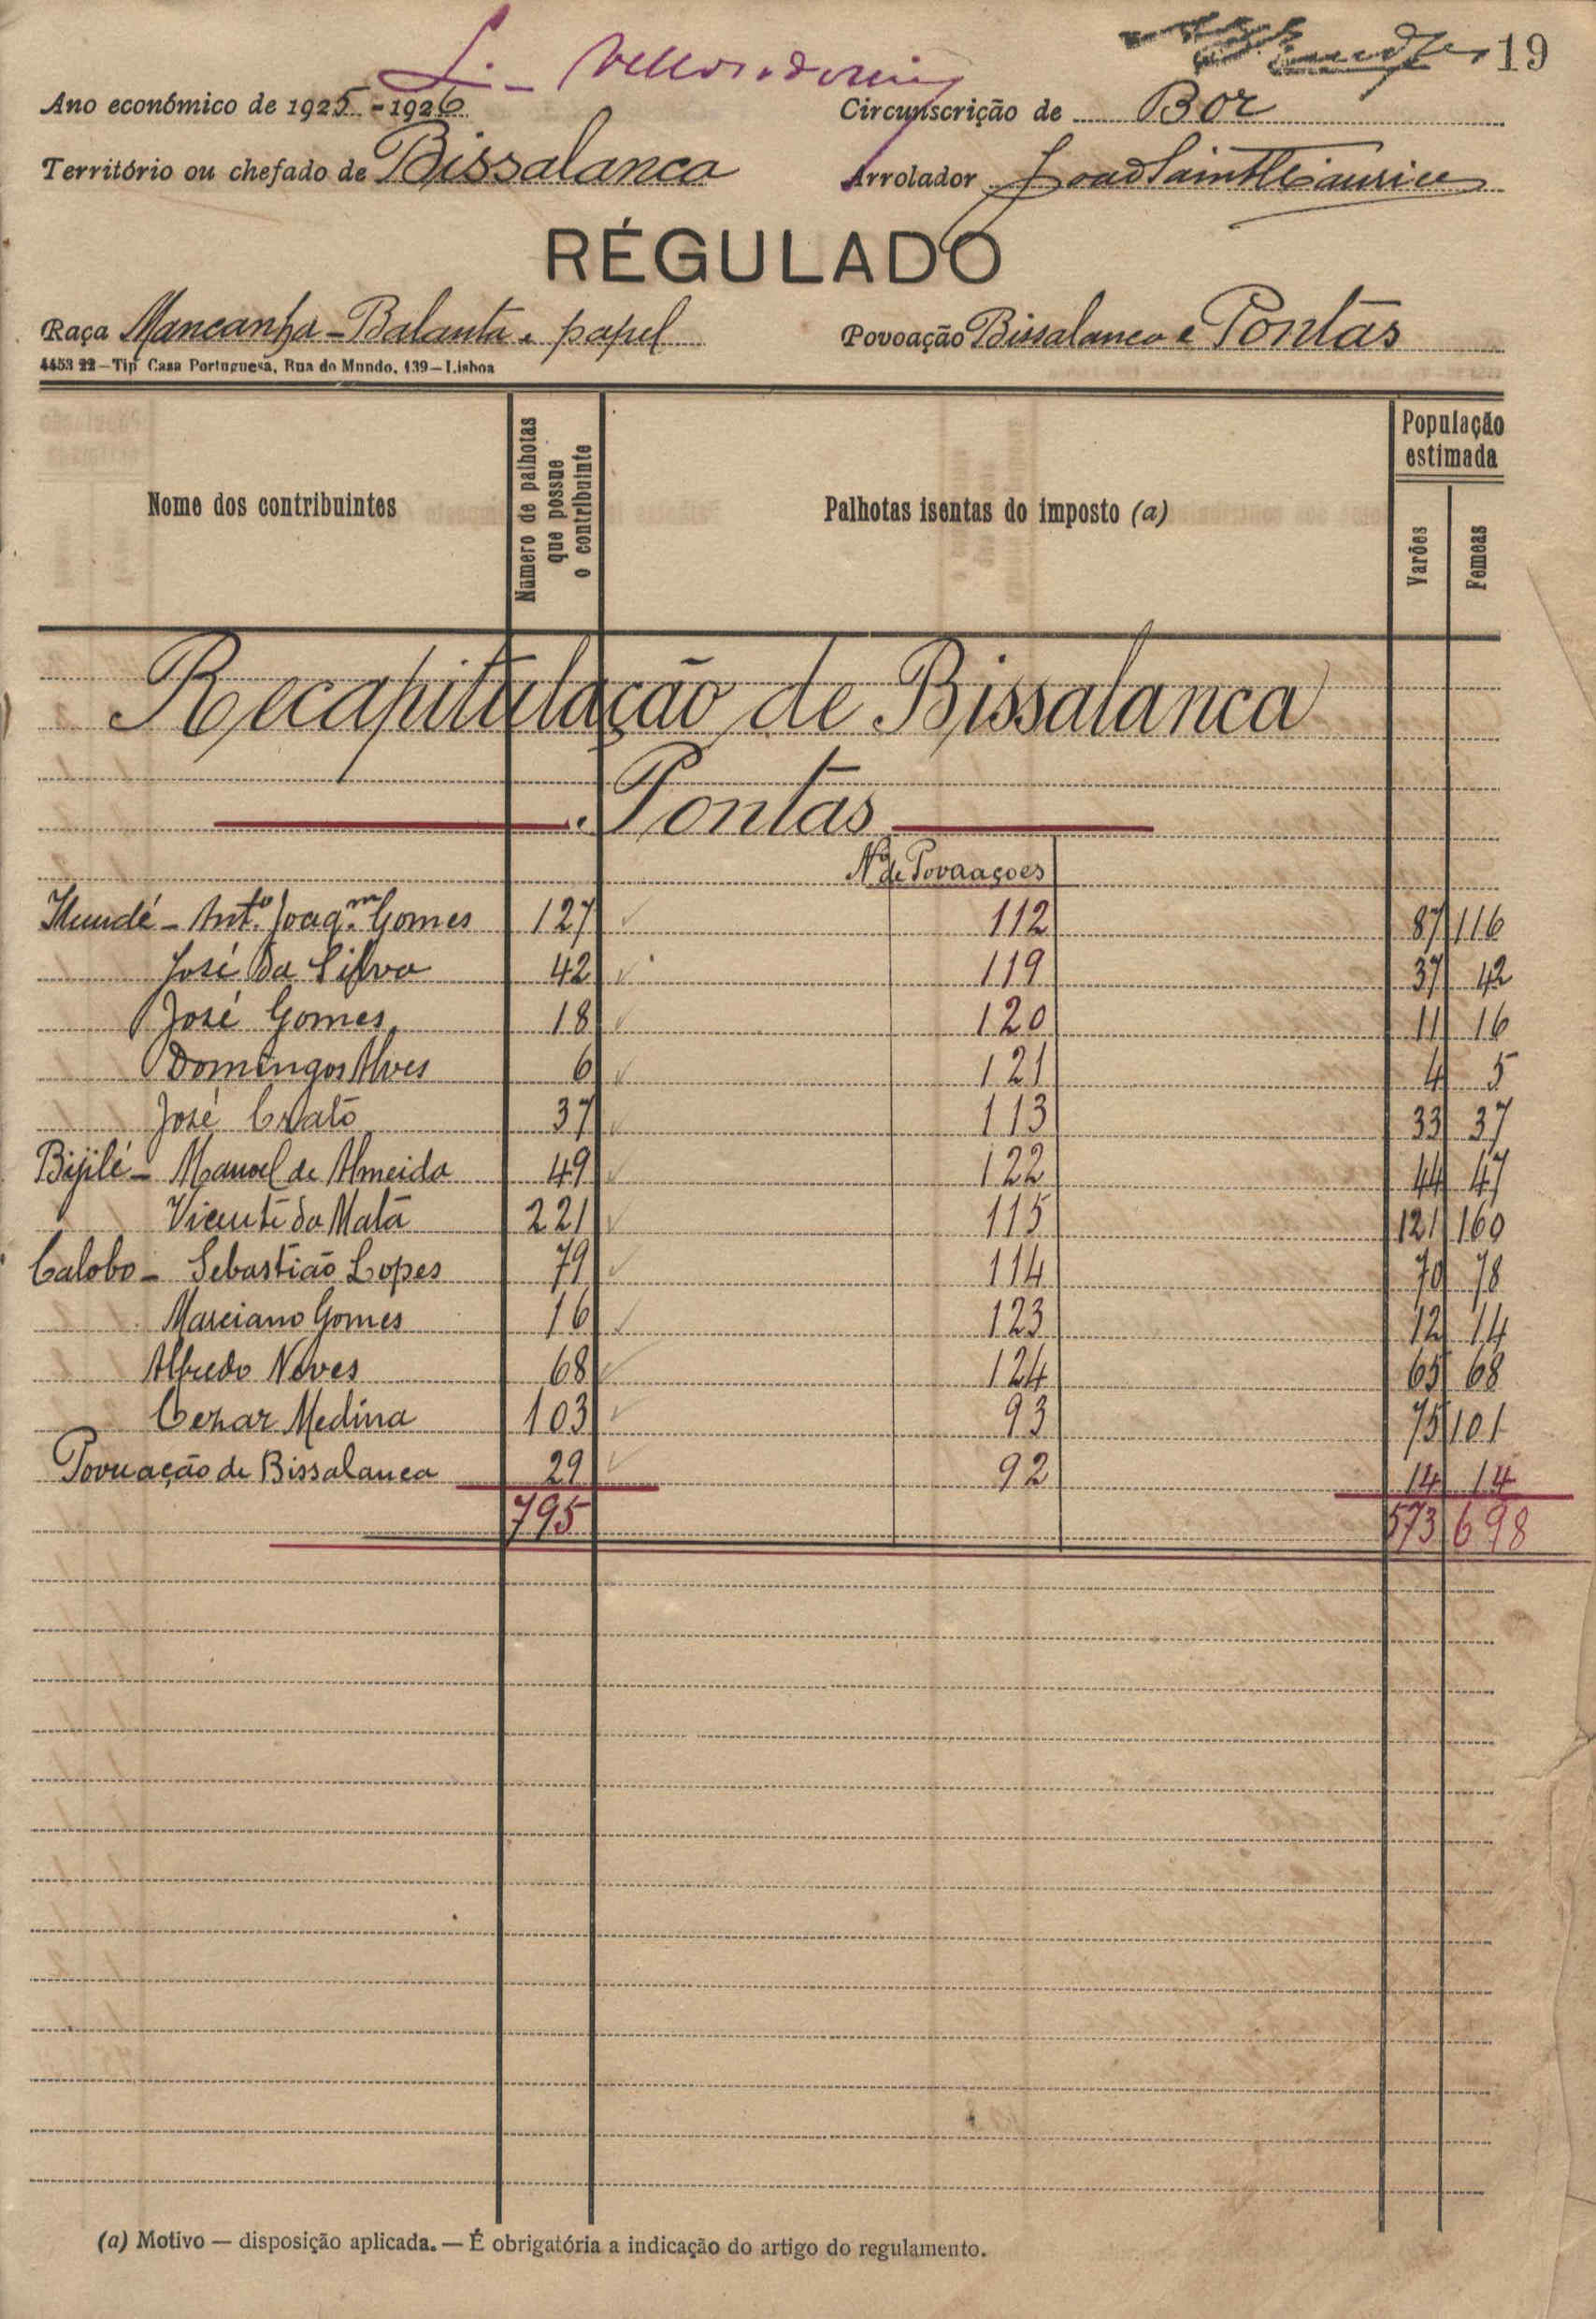 19
Ano económico de 1925-1926
Circunscrição de Bor
Território ou chefado de Bissalanca
Arrolador
RÉGULADO
Raça Mancanha - Balanta e papel
Povoação Bissalanca e Pontas
4453 22—Tip Casa Portuguesa, Rua do Mundo, 139—Lisboa
Nome dos contribuintes
Número de palhotas que possue o contribuinte
Palhotas isentas do imposto (a)
População estimada
Varões
Femeas
Recapitulação de Bissalanca
Pontas
Nº de Povoaçoes
Antº. Joaqm. Gomes 127 112 87 116
José da Silva 42 119 37 42
José Gomes 18 120 11 16
Domingos Alves 6 121 4 5
José Crato 37 113 33 37
Bijilé - Manoel de Almeida 49 122 44 47
Vicente da Mata 221 115 121 160
Calobo - Sebastião Lopes 79 114 70 78
Marciano Gomes 16 123 12 14
Alfredo Neves 68 124 65 68
Cezar Medina 103 93 75 101
Povuação de Bissalanca 29 92 14 14
795 573 698
(a) Motivo — disposição aplicada. — É obrigatória a indicação do artigo do regulamento.